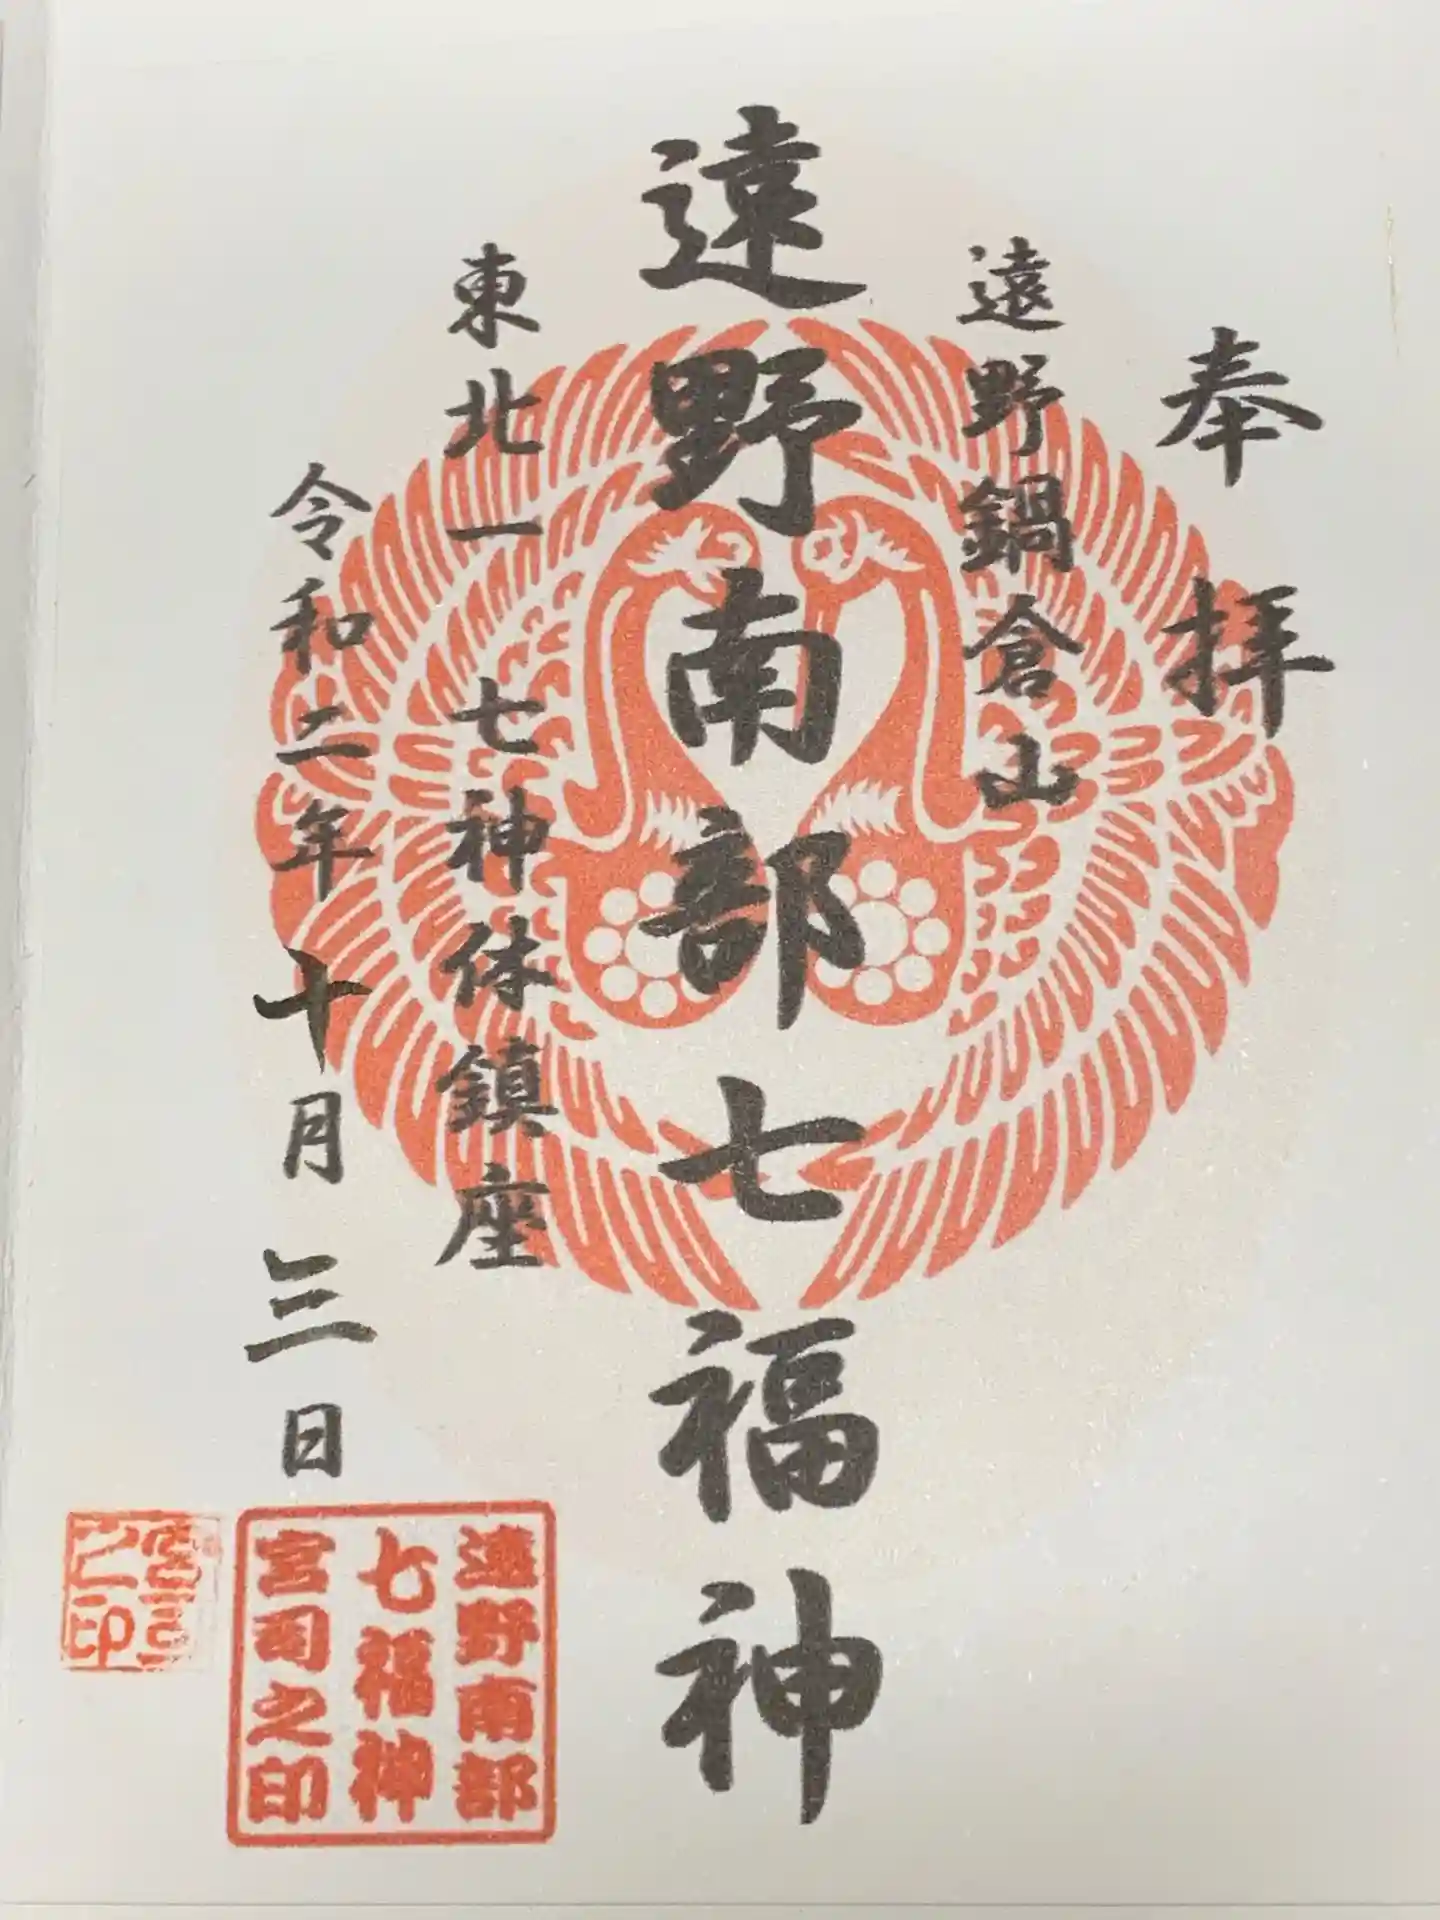 奉拝
遠野鍋倉山
遠野南部七福神
東北一 七神体鎮座
令和二年十月三日
遠野南部
七福神
宮司之印
宮司
之印